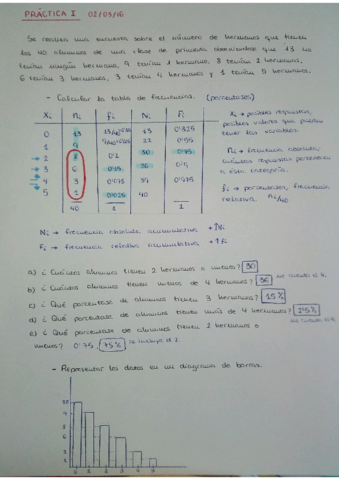 PRÁCTICA I 02/03/16
Se realiza una encuesta sobre el número de hermanos que tienen
los 40 alumnos de una clase de primaria observándose que 13 no
tenían ningún hermano, 9 tenían 1 hermano, 8 tenían 2 hermanos,
6 tenían 3 hermanos, 3 tenían 4 hermanos y 1 tenía 5 hermanos.
- Calcular la tabla de frecuencias. (porcentajes)
Xi ni fi Ni Fi
0 13 13 0'325
1 9 22 0'55
2 8 0'2 30 0'75
3 6 0'15 36 0'9
4 3 0'075 39 0'975
5 1 0'025 40 1
40 1
Xi → posibles respuestas,
posibles valores que pueden
tener las variables.
ni → frecuencia absoluta,
cuántas respuestas pertenecen
a esta categoría.
fi → porcentajes, frecuencia
relativa.
Ni → frecuencia absoluta acumulativa
Fi → frecuencia relativa acumulativa
a) ¿Cuántos alumnos tienen 2 hermanos o menos? 30
b) ¿Cuántos alumnos tienen menos de 4 hermanos? 36
c) ¿Qué porcentaje de alumnos tienen 3 hermanos? 15%
d) ¿Qué porcentaje de alumnos tienen más de 4 hermanos?
e) ¿Qué porcentaje de alumnos tiene 2 hermanos o
menos? 0'75 75% se incluye el 2
- Representar los datos en un diagrama de barras.